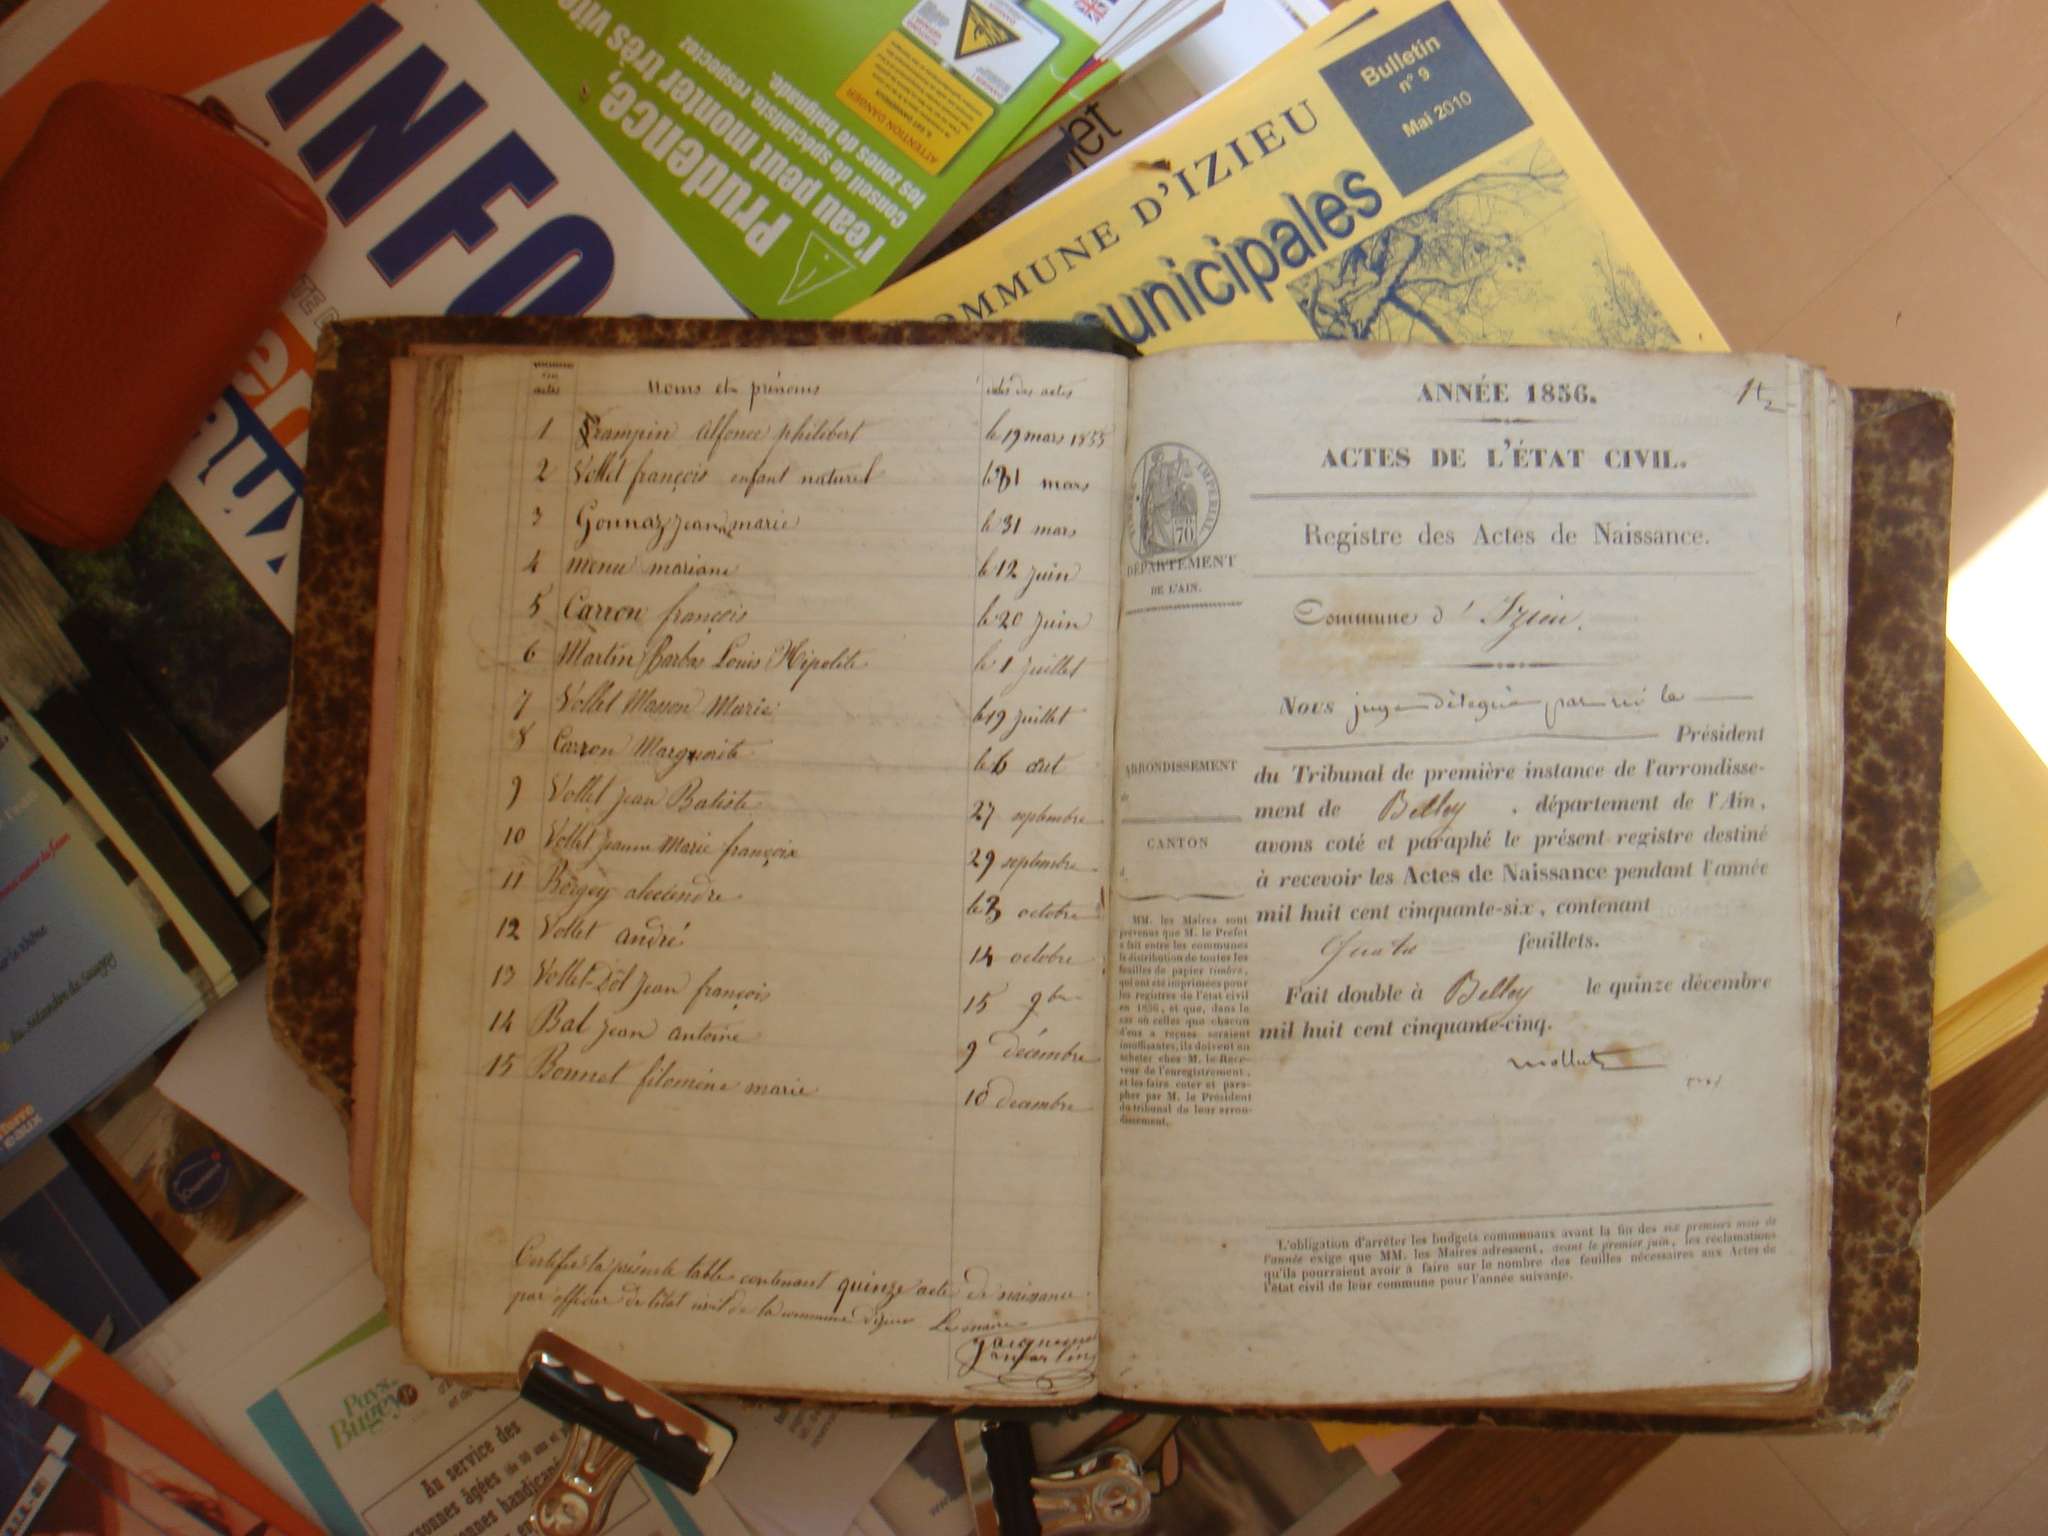 INFO
Prudence,
l'eau peut monter très vite
conseil de spécialiste, respectez
les zones de baignade.
ATTENTION DANGER
COMMUNE D'IZIEU
unicipales
Bulletin
n° 9
Mai 2010
actes Noms et prénoms dates des actes
1 Frampin Alfonce philibert le 19 mars 1855
2 Vollet françois enfant naturel le 31 mars
3 Gonnaz jean marie le 31 mars
4 menu mariane le 12 juin
5 Carron françois le 20 juin
6 Martin Barbas Louis Hipolite le 1 juillet
7 Vollet Masson Marie le 19 juillet
8 Carron Marguerite le 6 aut
9 Vollet jean Batiste 27 septembre
10 Vollet jeanne Marie françoix 29 septembre
11 Bergey alexendre le 3 octobre
12 Vollet andré 14 octobre
13 Vollet-Dôt jean françois 15 9bre
14 Bal jean antoine 9 décembre
15 Bonnet filomine marie 10 decembre
Certifie la présente table contenant quinze acte de naissance
par officier de l'état civil de la commune d'izieu Le maire
Martin
ANNÉE 1856.
ACTES DE L'ÉTAT CIVIL.
Registre des Actes de Naissance.
IMPÉRIAL
70
DÉPARTEMENT
DE L'AIN.
Commune d'Izieu.
Nous juge délégué par mr le
Président
du Tribunal de première instance de l'arrondisse-
ment de Belley, département de l'Ain,
avons coté et paraphé le présent registre destiné
à recevoir les Actes de Naissance pendant l'année
mil huit cent cinquante-six, contenant
Quatre feuillets.
Fait double à Belley le quinze décembre
mil huit cent cinquante-cinq.
ARRONDISSEMENT
CANTON
MM. les Maires sont
prévenus que M. le Préfet
a fait entre les communes
la distribution de toutes les
feuilles de papier timbré,
qui ont été imprimées pour
les registres de l'état civil
en 1856, et que, dans le
cas où celles que chacun
d'eux a reçues seraient
insuffisantes, ils doivent en
acheter chez M. le Rece-
veur de l'enregistrement,
et les faire coter et para-
pher par M. le Président
du tribunal de leur arron-
dissement.
L'obligation d'arrêter les budgets communaux avant la fin des six premiers mois de
l'année exige que MM. les Maires adressent, avant le premier juin, les réclamations
qu'ils pourraient avoir à faire sur le nombre des feuilles nécessaires aux Actes de
l'état civil de leur commune pour l'année suivante.
Pays
Bugey
Au service des
personnes âgées